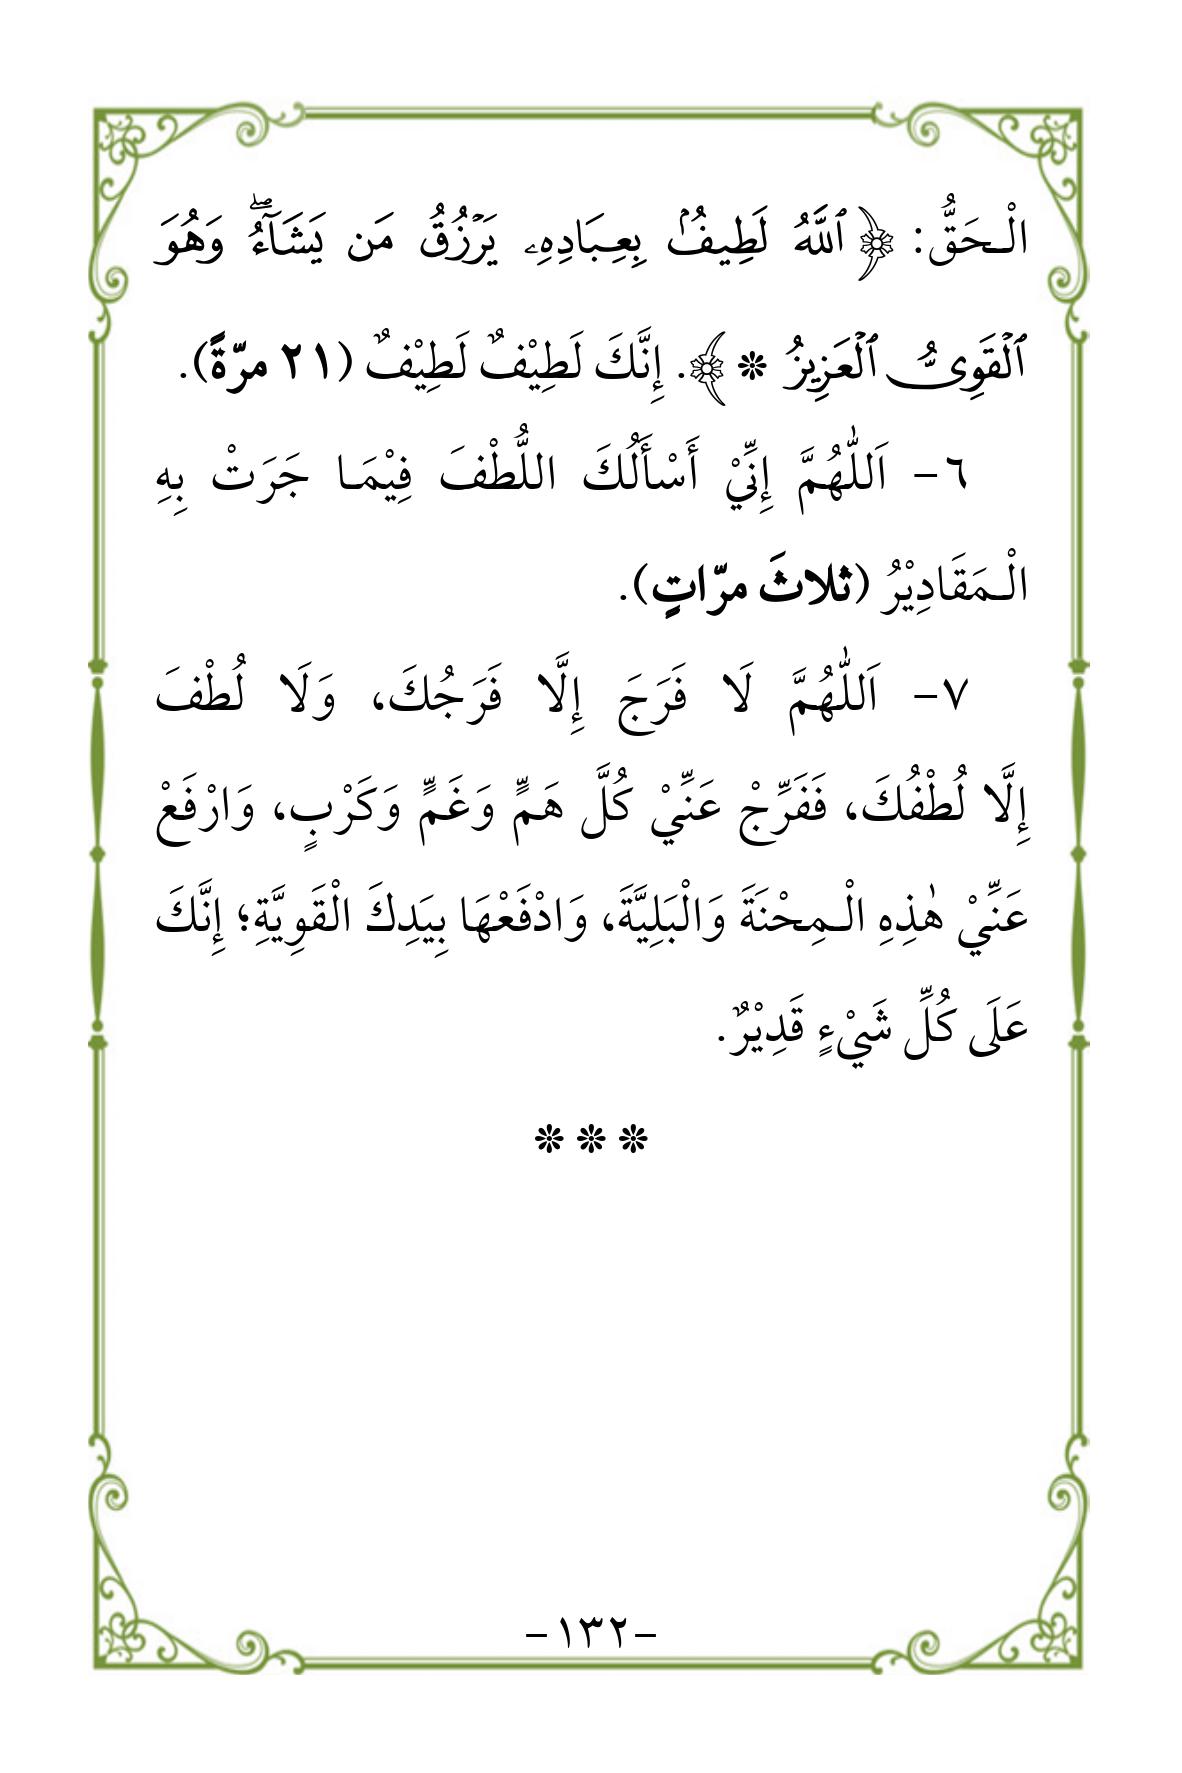 الْـحَقُّ: ﴿ٱللَّهُ لَطِيفُۢ بِعِبَادِهِۦ يَرْزُقُ مَن يَشَآءُۖ وَهُوَ
ٱلْقَوِىُّ ٱلْعَزِيزُ ❊﴾. إِنَّكَ لَطِيْفٌ لَطِيْفٌ (٢١ مرّةً).
٦- اَللّٰهُمَّ إِنِّيْ أَسْأَلُكَ اللُّطْفَ فِيْمَـا جَرَتْ بِهِ
الْـمَقَادِيْرُ (ثلاثَ مرّاتٍ).
٧- اَللّٰهُمَّ لَا فَرَجَ إِلَّا فَرَجُكَ، وَلَا لُطْفَ
إِلَّا لُطْفُكَ، فَفَرِّجْ عَنِّيْ كُلَّ هَمٍّ وَغَمٍّ وَكَرْبٍ، وَارْفَعْ
عَنِّيْ هٰذِهِ الْـمِحْنَةَ وَالْبَلِيَّةَ، وَادْفَعْهَا بِيَدِكَ الْقَوِيَّةِ؛ إِنَّكَ
عَلَى كُلِّ شَيْءٍ قَدِيْرٌ.
❊ ❊ ❊
-١٣٢-